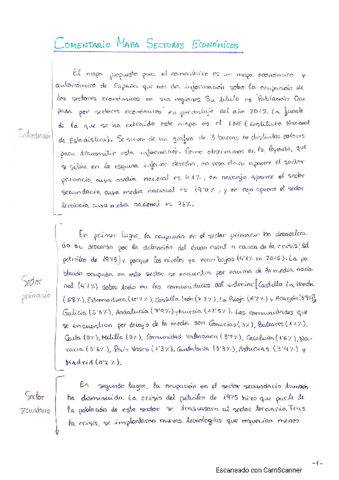 COMENTARIO MAPA SECTORES ECONÓMICOS
El mapa propuesto para el comentario es un mapa económico y
autonómico de España que nos da información sobre la ocupación de
los sectores económicos en sus regiones. Su título es "Población Ocu-
pada por sectores económicos" en porcentaje del año 2015. La fuente
de la que se ha extraído este mapa es el INE (Instituto Nacional
de Estadística). Se sirve de un gráfico de 3 barras de distintos colores
para transmitir esta información. Como observamos en la leyenda, que
se sitúa en la esquina inferior derecha, en verde claro aparece el sector
primario, cuya media nacional es 4'1%, en naranja aparece el sector
secundario, cuya media nacional es 19'9%, y en rojo aparece el sector
terciario, cuya media nacional es 76%.
Introducción
En primer lugar, la ocupación en el sector primario ha descendi-
do su proceso por la detención del éxodo rural a causa de la crisis del
petróleo de 1975 y porque los niveles ya eran bajos (4'1% en 2015). La po-
blación ocupada en este sector se encuentra por encima de la media nacio-
nal (4'1%) sobre todo en las comunidades del interior [Castilla la Mancha
(6'8%), Extremadura, Castilla León, La Rioja y Aragón
Galicia, Andalucía y Murcia. Las comunidades que
se encuentran por debajo de la media son Canarias (3%), Baleares (1'1%),
Ceuta (0%), Melilla (0%), Comunidad Valenciana (3'7%), Cataluña, Na-
varra (3'6%), País Vasco, Cantabria, Asturias (3'9%) y
Madrid
Sector
primario
En segundo lugar, la ocupación en el sector secundario también
ha disminuido. La crisis del petróleo de 1975 hizo que parte de
la población de este sector se traspasara al sector terciario. Tras
la crisis, se implantaron nuevas tecnologías que requerían menos
Sector
secundario
-1-
Escaneado con CamScanner